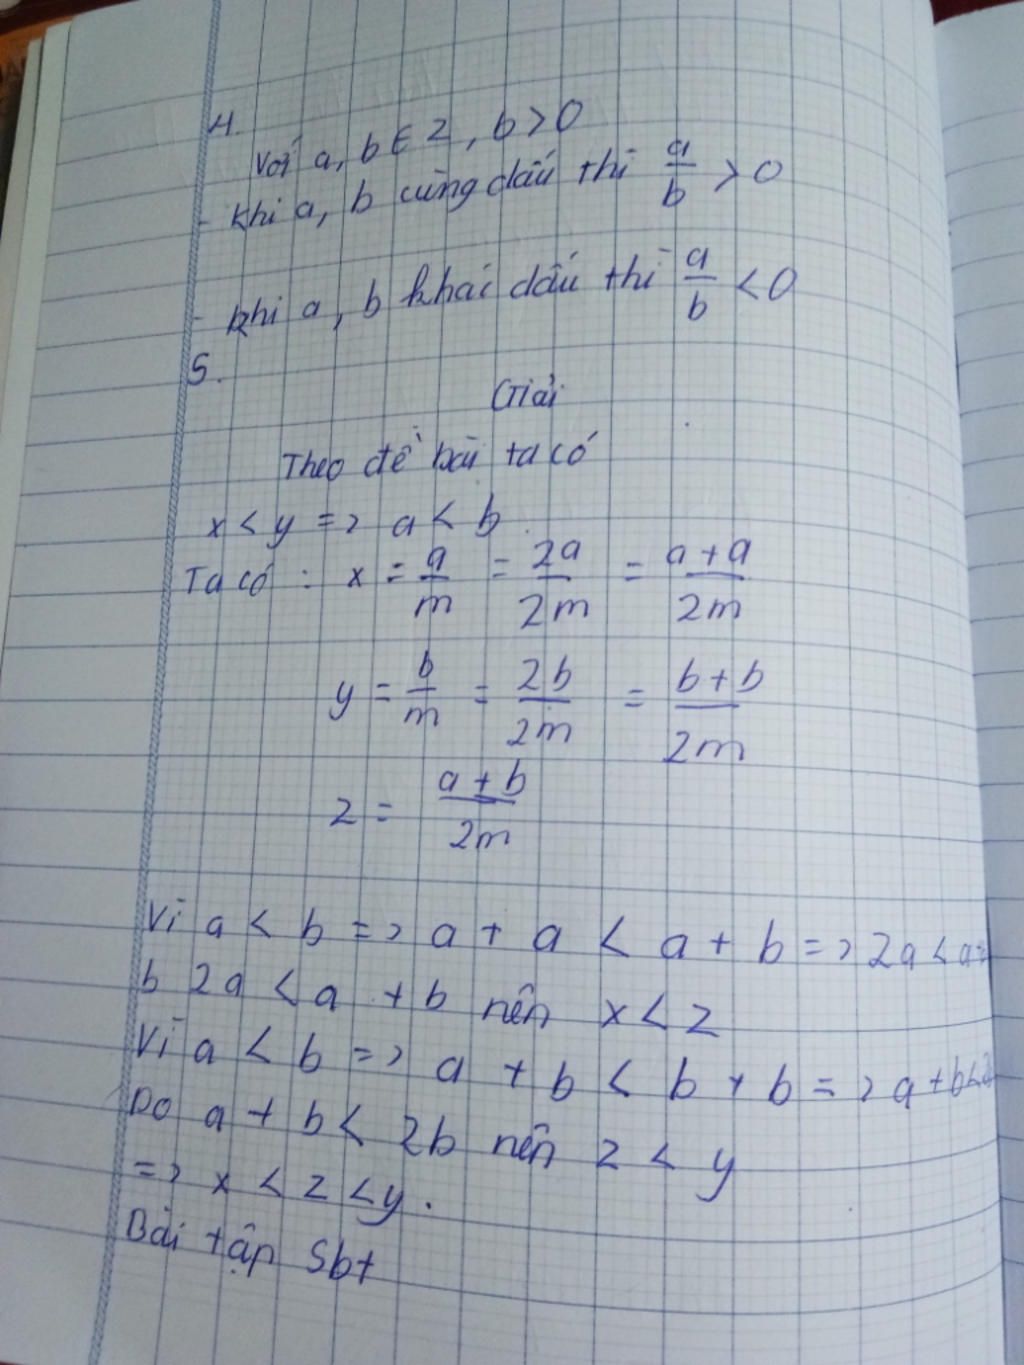 4.
Với a, b ∈ Z, b > 0
- khi a, b cùng dấu thì a/b > 0
- khi a, b khác dấu thì a/b < 0
5.
Giải
Theo đề bài ta có
x < y => a < b.
Ta có : x = a/m = 2a/2m = a + a/2m
y = b/m = 2b/2m = b + b/2m
z = a + b/2m
Vì a < b => a + a < a + b => 2a < a +
b 2a < a + b nên x < z
Vì a < b => a + b < b + b => a + b < 2
Do a + b < 2b nên z < y
=> x < z < y.
Bài tập Sbt